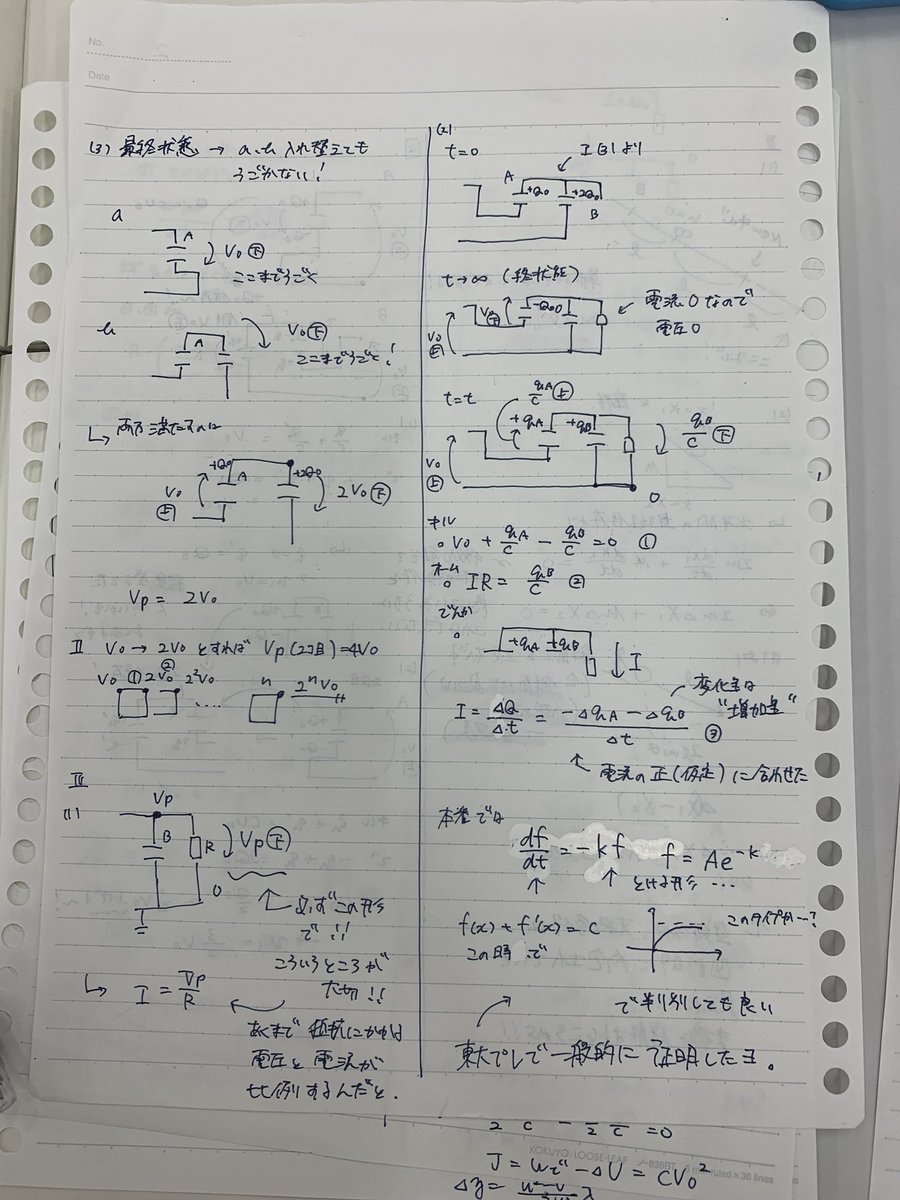 No.
2
Date
(3) 最終状態 → a, b 入れ替えても
うごかない!
a
A
V₀ 下
ここまでうごく
b
A
V₀ 下
ここまでうごく!
両方満たすのは
+Q₀
A
+2Q₀
V₀ 上
2V₀ 下
Vp = 2V₀
II V₀ → 2V₀ とすれば Vp(2コ目)=4V₀
V₀ ① 2V₀ ② 2²V₀ .... n 2ⁿV₀
III
(1)
Vp
B
R
Vp 下
0
必ずこの形
で!!
こういうところが
大切!!
I = Vp/R
あくまで抵抗にかかる
電圧と電流が
比例するんだと.
(2)
t=0
I(3)より
A
+Q₀
+2Q₀
B
t→∞ (終状態)
-Q₀
0
V₀ 下
V₀ 上
電流0なので
電圧0
t=t
qA/C 上
+qA
+qB
qB/C 下
V₀ 上
0
キル
○ V₀ + qA/C - qB/C = 0 ①
オーム
○ IR = qB/C ②
でんか
○
+qA +qB
I
I = ΔQ/Δt = (-ΔqA - ΔqB)/Δt ③
変化量は
"増加量"
電流の正(仮定)に合わせた
本番では
df/dt = -kf
f = Ae⁻ᵏ
とける形 ...
f(x) + f'(x) = c
この時で
このタイプか…?
で判別しても良い
東大プレで一般的に証明したヨ.
2 C - 2 C = 0
KOKUYO LOOSE-LEAF
mm ruled × 36 lines
J = W - ΔU = CV₀²